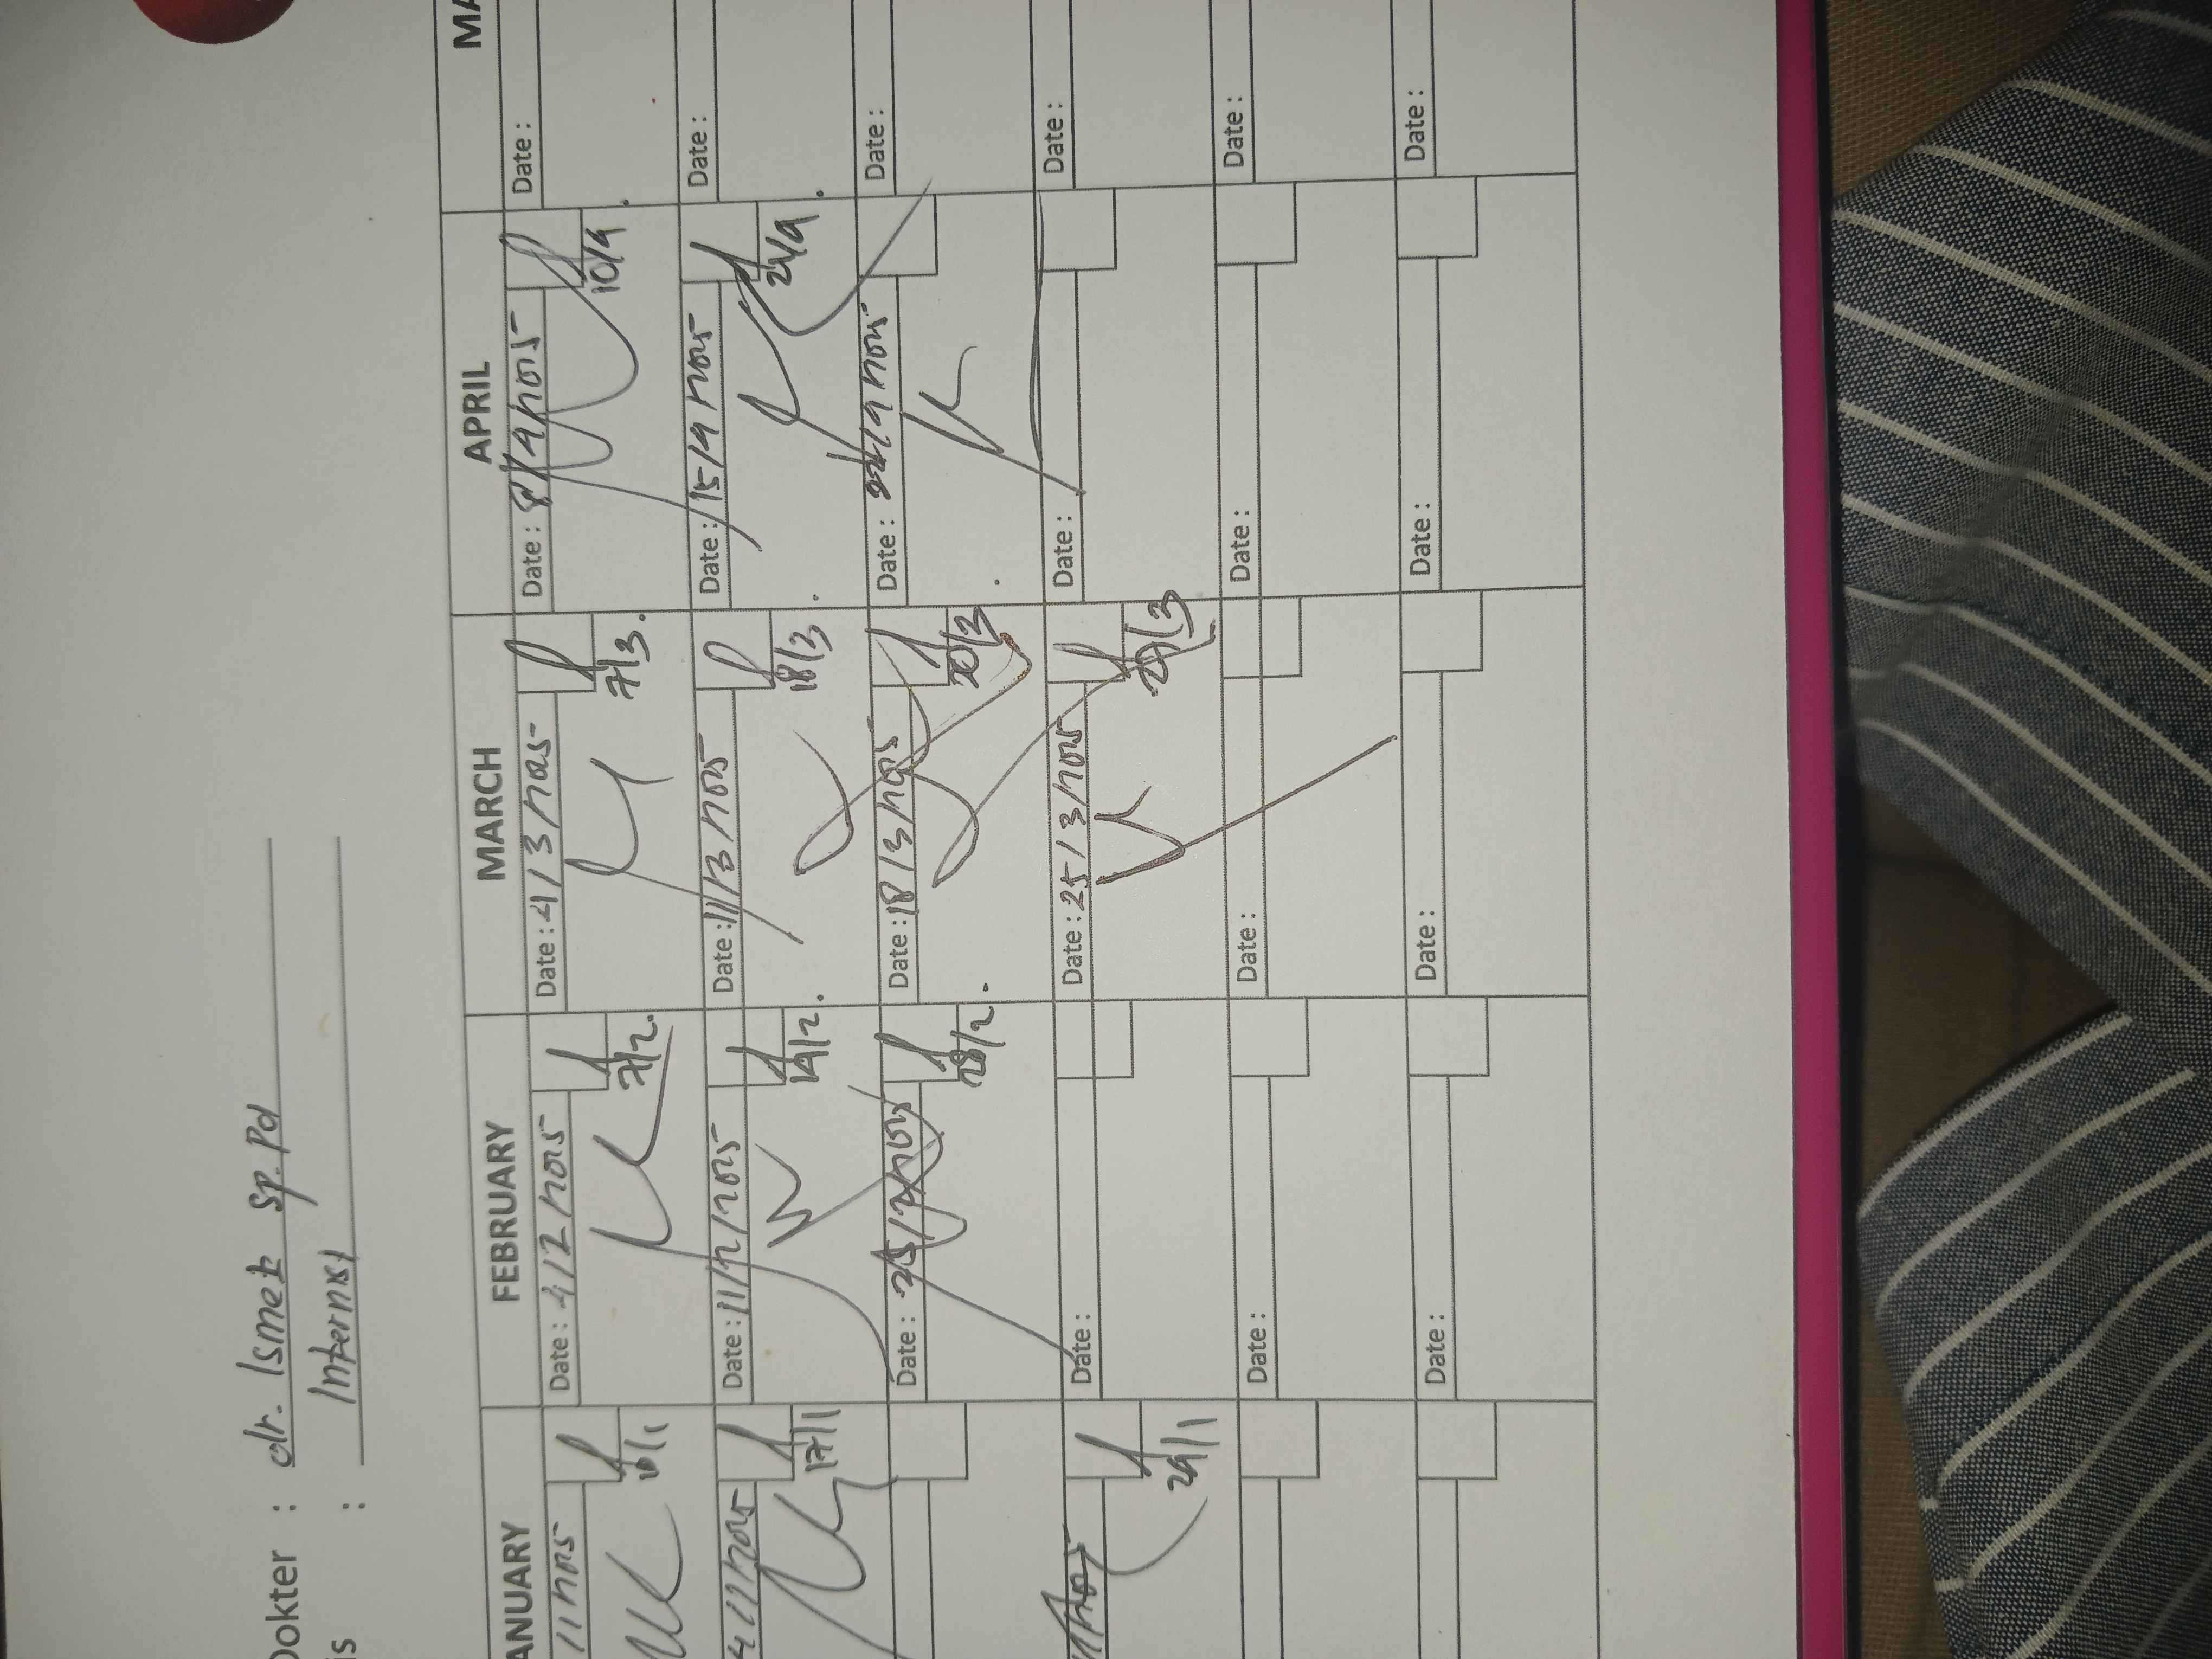 Dokter : dr. Ismet Sp.Pd
is : Internist
ANUARY FEBRUARY MARCH APRIL MA
Date : 4/2/2025 Date : 4/3/2025 Date : 8/4/2025 Date :
7/2. 7/3. 10/4.
Date : 11/2/2025 Date : 11/3/2025 Date : 15/4/2025 Date :
17/1 14/2. 18/3. 24/4.
Date : 25/2/2025 Date : 18/3/2025 Date : 22/4/2025 Date :
28/2. 20/3.
Date : Date : 25/3/2025 Date : Date :
24/1 27/3
Date : Date : Date : Date :
Date : Date : Date : Date :